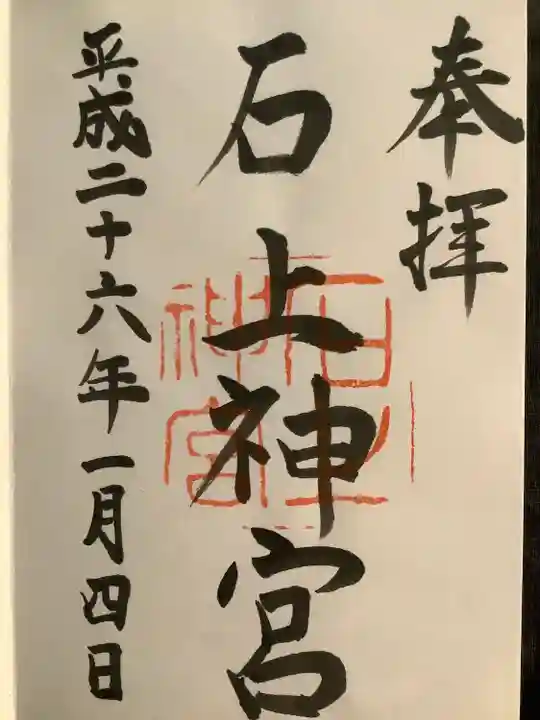 奉拝
石上神宮
石上
神宮
平成二十六年一月四日